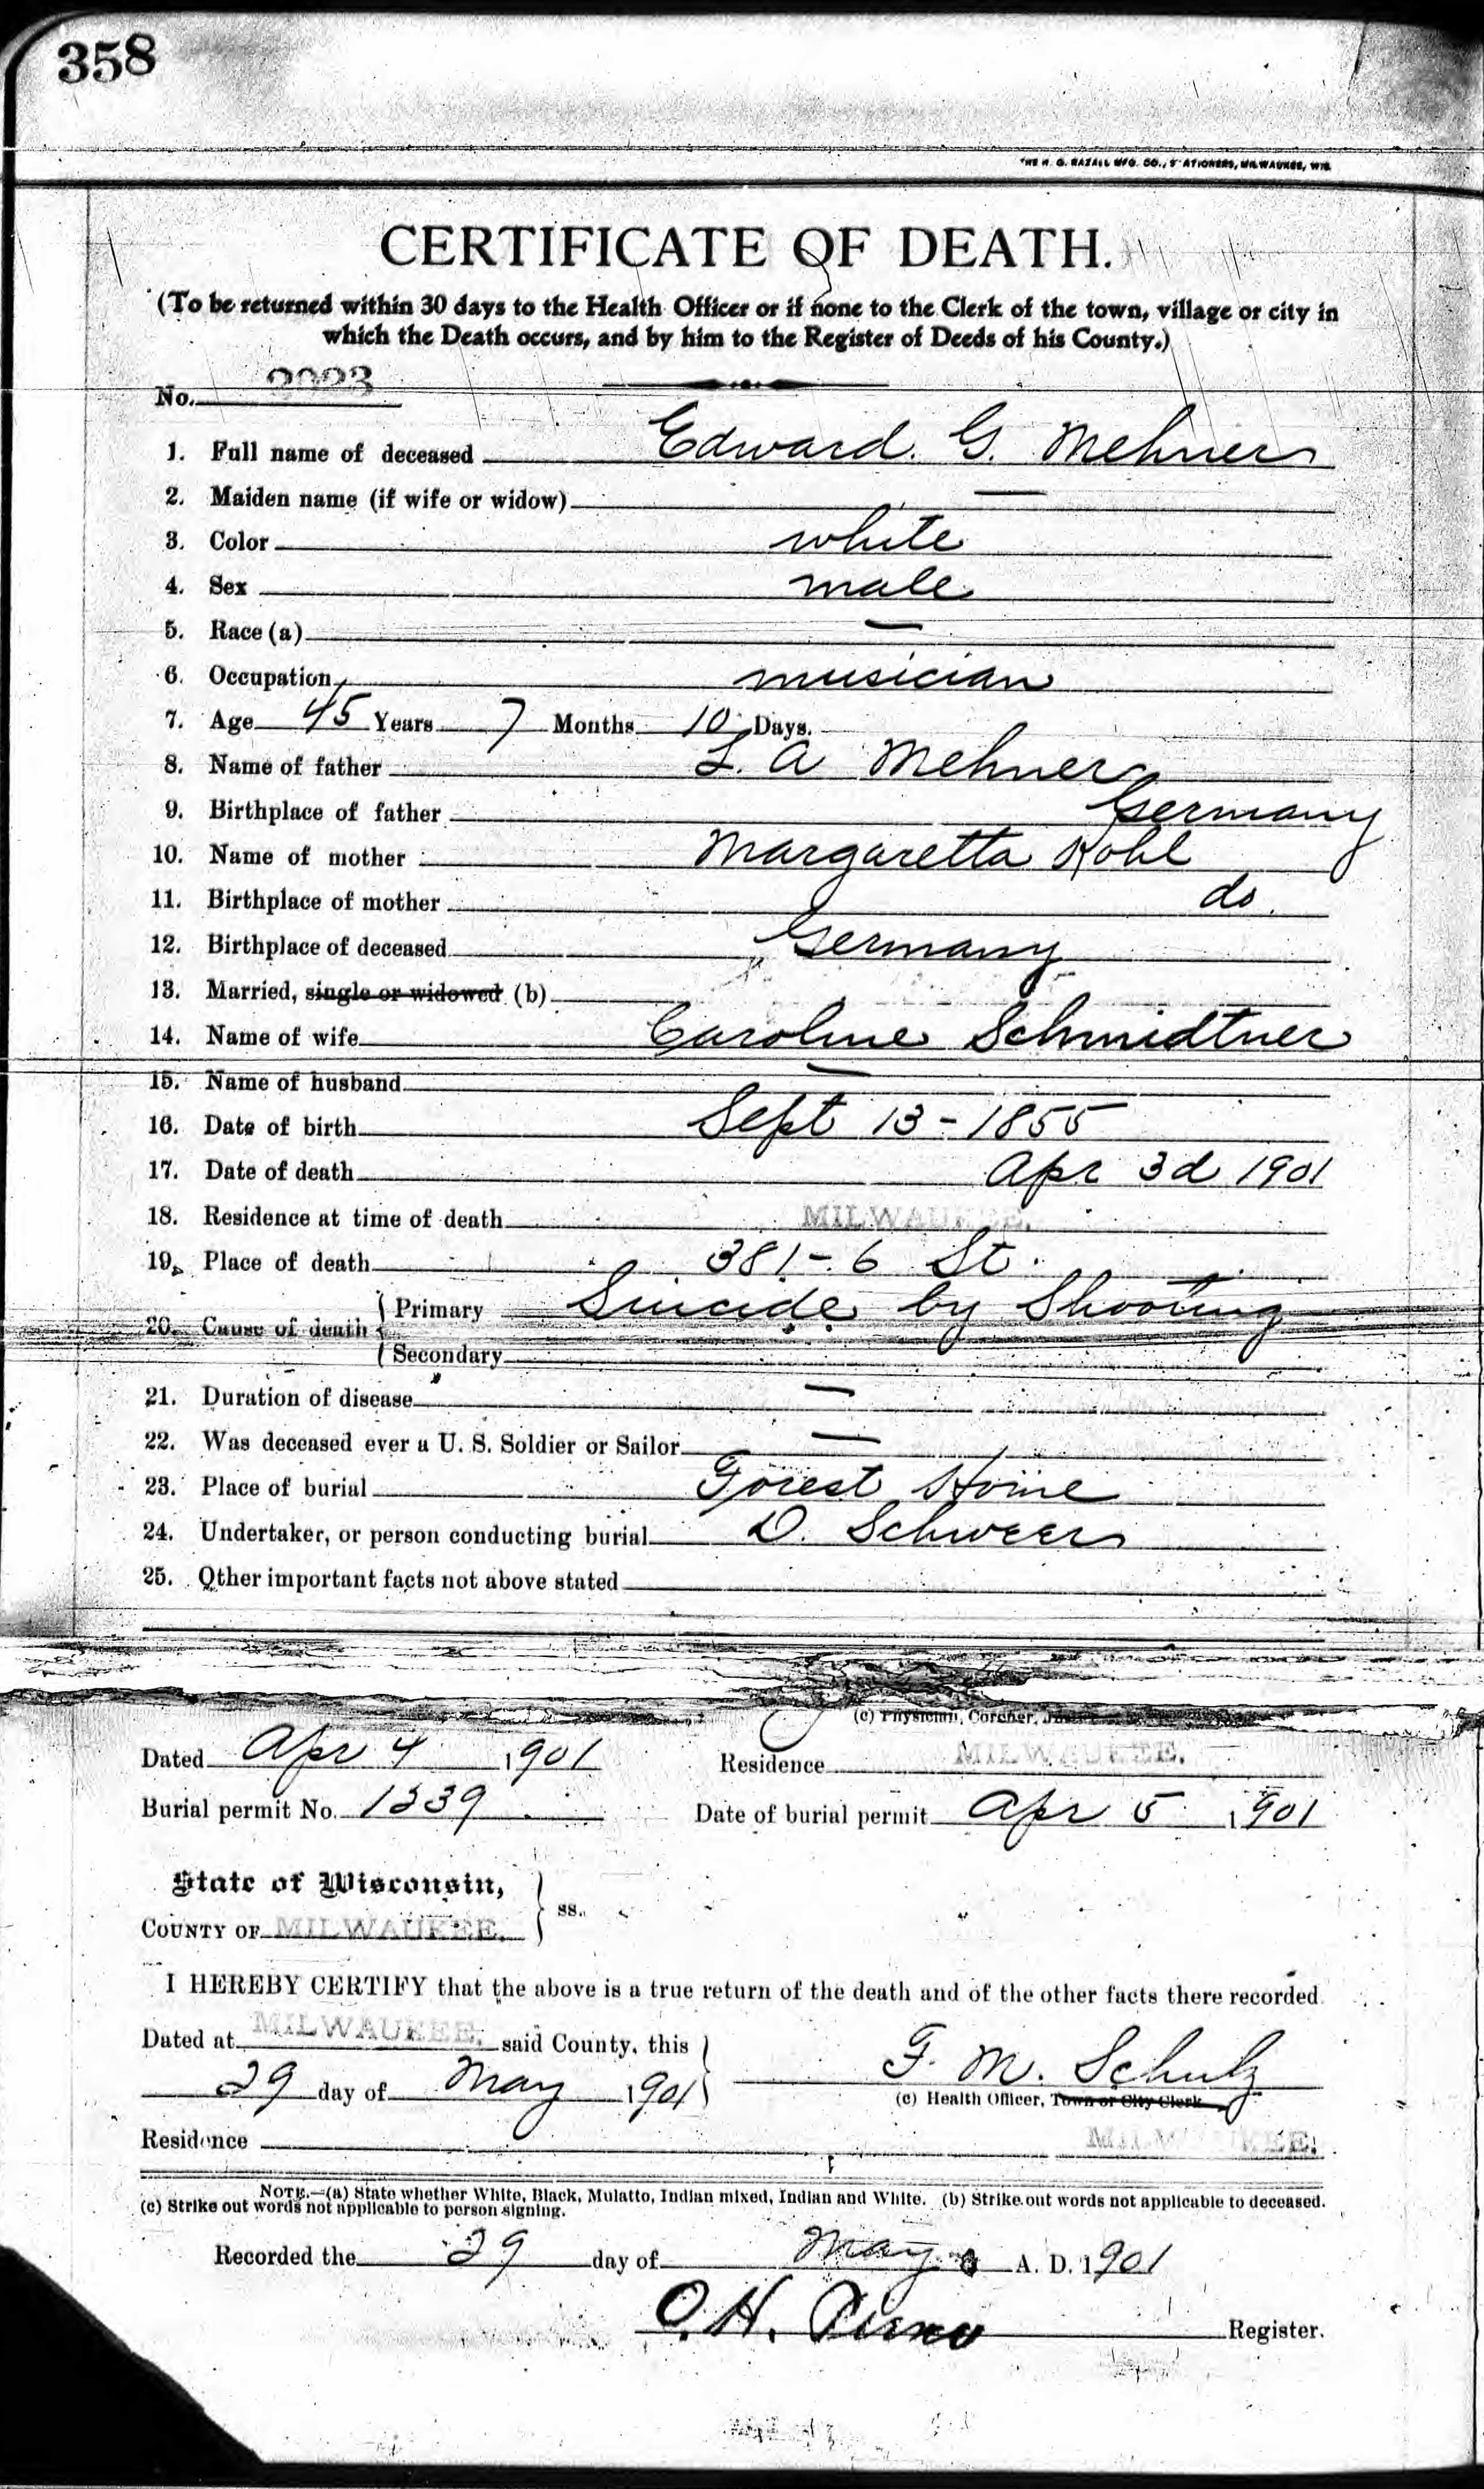 358
THE H. G. RAZALL MFG. CO., STATIONERS, MILWAUKEE, WIS.
CERTIFICATE OF DEATH.
(To be returned within 30 days to the Health Officer or if none to the Clerk of the town, village or city in
which the Death occurs, and by him to the Register of Deeds of his County.)
No. 2023
1. Full name of deceased Edward. G. Mehner
2. Maiden name (if wife or widow) —
3. Color white
4. Sex male
5. Race (a) —
6. Occupation musician
7. Age 45 Years 7 Months 10 Days.
8. Name of father L. A Mehner
9. Birthplace of father Germany
10. Name of mother Margaretta Kohl
11. Birthplace of mother do.
12. Birthplace of deceased Germany
13. Married, single or widowed (b)
14. Name of wife Caroline Schmidtner
15. Name of husband —
16. Date of birth Sept 13-1855
17. Date of death Apr 3d 1901
18. Residence at time of death MILWAUKEE.
19. Place of death 381-6 St.
20. Cause of death { Primary Suicide by Shooting
{ Secondary
21. Duration of disease —
22. Was deceased ever a U. S. Soldier or Sailor —
23. Place of burial Forest Home
24. Undertaker, or person conducting burial D. Schweers
25. Other important facts not above stated
(c) Physician, Coroner,
Dated Apr 4 1901 Residence MILWAUKEE.
Burial permit No. 1339 Date of burial permit Apr 5 1901
State of Wisconsin, } ss.
COUNTY OF MILWAUKEE.
I HEREBY CERTIFY that the above is a true return of the death and of the other facts there recorded
Dated at MILWAUKEE. said County, this
29 day of May 1901 } F. M. Schulz
(c) Health Officer, Town or City Clerk
Residence MILWAUKEE.
NOTE.—(a) State whether White, Black, Mulatto, Indian mixed, Indian and White. (b) Strike out words not applicable to deceased.
(c) Strike out words not applicable to person signing.
Recorded the 29 day of May A. D. 1901
O. H. Register.